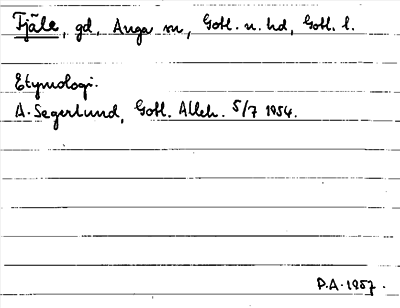 Fjäle, gd, Anga sn, Gotl. n. hd, Gotl. l.
Etymologi.
A. Segerlund, Gotl. Alleh. 5/7 1954.
P.A. 1957.